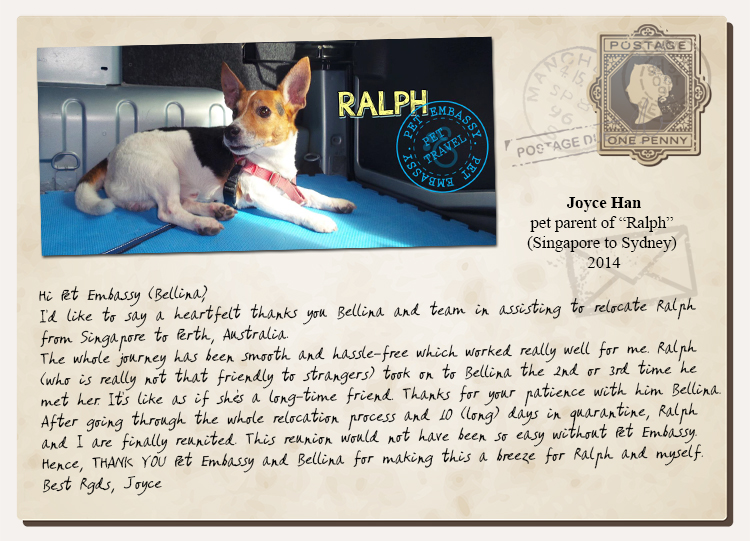 RALPH
PET EMBASSY
PET TRAVEL
PET EMBASSY
POSTAGE
ONE PENNY
MANCH
POSTAGE D
Joyce Han
pet parent of “Ralph”
(Singapore to Sydney)
2014
Hi Pet Embassy (Bellina),
I'd like to say a heartfelt thanks you Bellina and team in assisting to relocate Ralph
from Singapore to Perth, Australia.
The whole journey has been smooth and hassle-free which worked really well for me. Ralph
(who is really not that friendly to strangers) took on to Bellina the 2nd or 3rd time he
met her. It's like as if she's a long-time friend. Thanks for your patience with him Bellina.
After going through the whole relocation process and 10 (long) days in quarantine, Ralph
and I are finally reunited. This reunion would not have been so easy without Pet Embassy.
Hence, THANK YOU Pet Embassy and Bellina for making this a breeze for Ralph and myself.
Best Rgds, Joyce